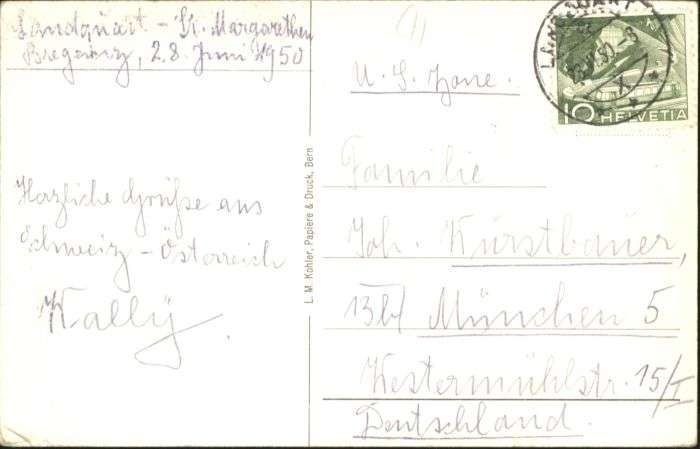 Landquart - St. Margarethen
Bregenz, 28. Juni 1950
Herzliche Grüße aus
Schweiz - Österreich
Wally
L. M. Kohler, Papiere & Druck, Bern
U. S. Zone.
Familie
Joh. Kürstbauer,
13b/ München 5
Westermühlstr. 15/I
Deutschland.
10 HELVETIA